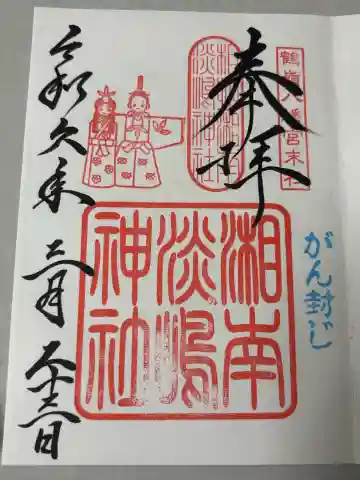 鶴嶺八幡宮末社
奉拝
湘南淡嶋神社
がん封じ
湘南
淡嶋
神社
令和六年三月二十三日